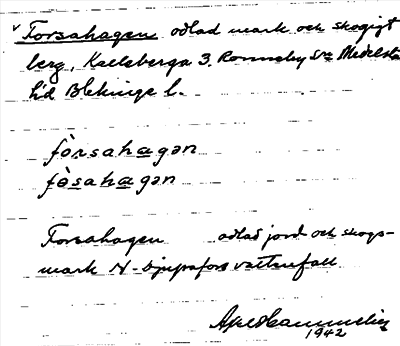 v Torsahagen odlad mark och skogigt
berg, Kalleberga 3, Ronneby sn Medelsta
hd Blekinge l.
fòrsahagən
fòsahagən
Torsahagen odlad jord och skogs-
mark N. Djupafors vattenfall
1942